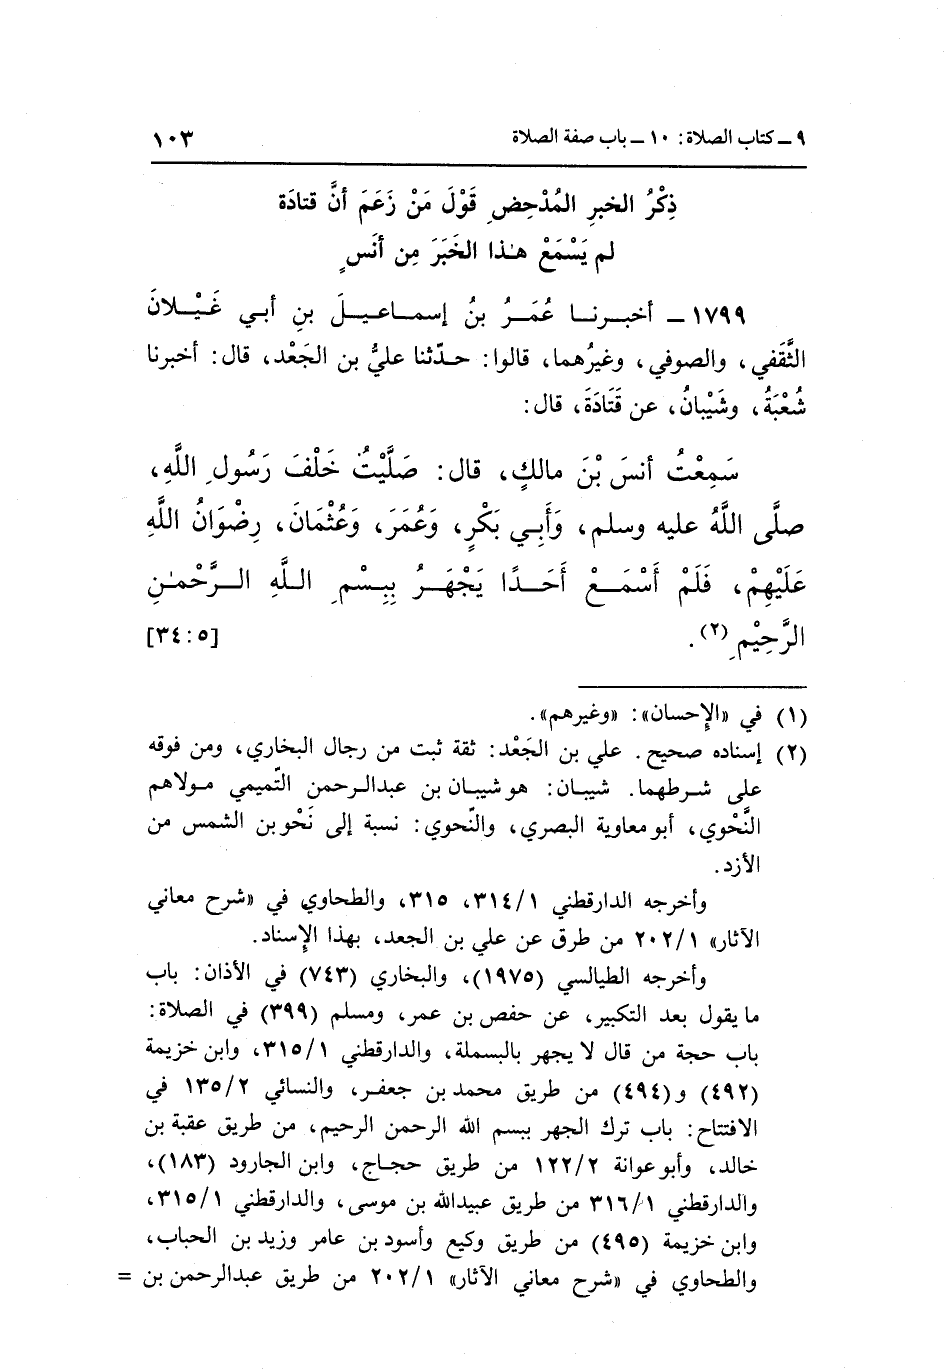 ٩ ـ كتاب الصلاة: ١٠ ـ باب صفة الصلاة ١٠٣
ذِكْرُ الخبرِ المُدْحِضِ قَوْلَ مَنْ زَعَمَ أنَّ قتادَة
لم يَسْمَعْ هٰذا الخَبَرَ مِن أنَسٍ
١٧٩٩ ـ أخبرنا عُمَرُ بنُ إسماعيلَ بنِ أبي غَيْلانَ
الثَّقَفي، والصوفي، وغيرُهما، قالوا: حدّثنا عليُّ بن الجَعْد، قال: أخبرنا
شُعْبَةُ، وشَيْبانُ، عن قَتَادَةَ، قال:
سَمِعْتُ أنسَ بْنَ مالكٍ، قال: صَلَّيْتُ خَلْفَ رَسُولِ اللَّهِ،
صلَّى اللَّهُ عليه وسلم، وَأَبِي بَكْرٍ، وَعُمَرَ، وَعُثْمَانَ، رِضْوَانُ اللَّهِ
عَلَيْهِمْ، فَلَمْ أَسْمَعْ أَحَدًا يَجْهَرُ بِبِسْمِ اللَّهِ الرَّحْمٰنِ
الرَّحِيْمِ (٢). [٥: ٣٤]
(١) في «الإحسان»: «وغيرهم».
(٢) إسناده صحيح. علي بن الجَعْد: ثقة ثبت من رجال البخاري، ومن فوقه
على شرطهما. شيبان: هو شيبان بن عبدالرحمن التّميمي مولاهم
النَّحْوي، أبو معاوية البصري، والنّحوي: نسبة إلى نَحْو بن الشمس من
الأزد.
وأخرجه الدارقطني ٣١٤/١، ٣١٥، والطحاوي في «شرح معاني
الآثار» ٢٠٢/١ من طرق عن علي بن الجعد، بهذا الإسناد.
وأخرجه الطيالسي (١٩٧٥)، والبخاري (٧٤٣) في الأذان: باب
ما يقول بعد التكبير، عن حفص بن عمر، ومسلم (٣٩٩) في الصلاة:
باب حجة من قال لا يجهر بالبسملة، والدارقطني ٣١٥/١، وابن خزيمة
(٤٩٢) و(٤٩٤) من طريق محمد بن جعفر، والنسائي ١٣٥/٢ في
الافتتاح: باب ترك الجهر ببسم الله الرحمن الرحيم، من طريق عقبة بن
خالد، وأبو عوانة ١٢٢/٢ من طريق حجاج، وابن الجارود (١٨٣)،
والدارقطني ٣١٦/١ من طريق عبيدالله بن موسى، والدارقطني ٣١٥/١،
وابن خزيمة (٤٩٥) من طريق وكيع وأسود بن عامر وزيد بن الحباب،
والطحاوي في «شرح معاني الآثار» ٢٠٢/١ من طريق عبدالرحمن بن =